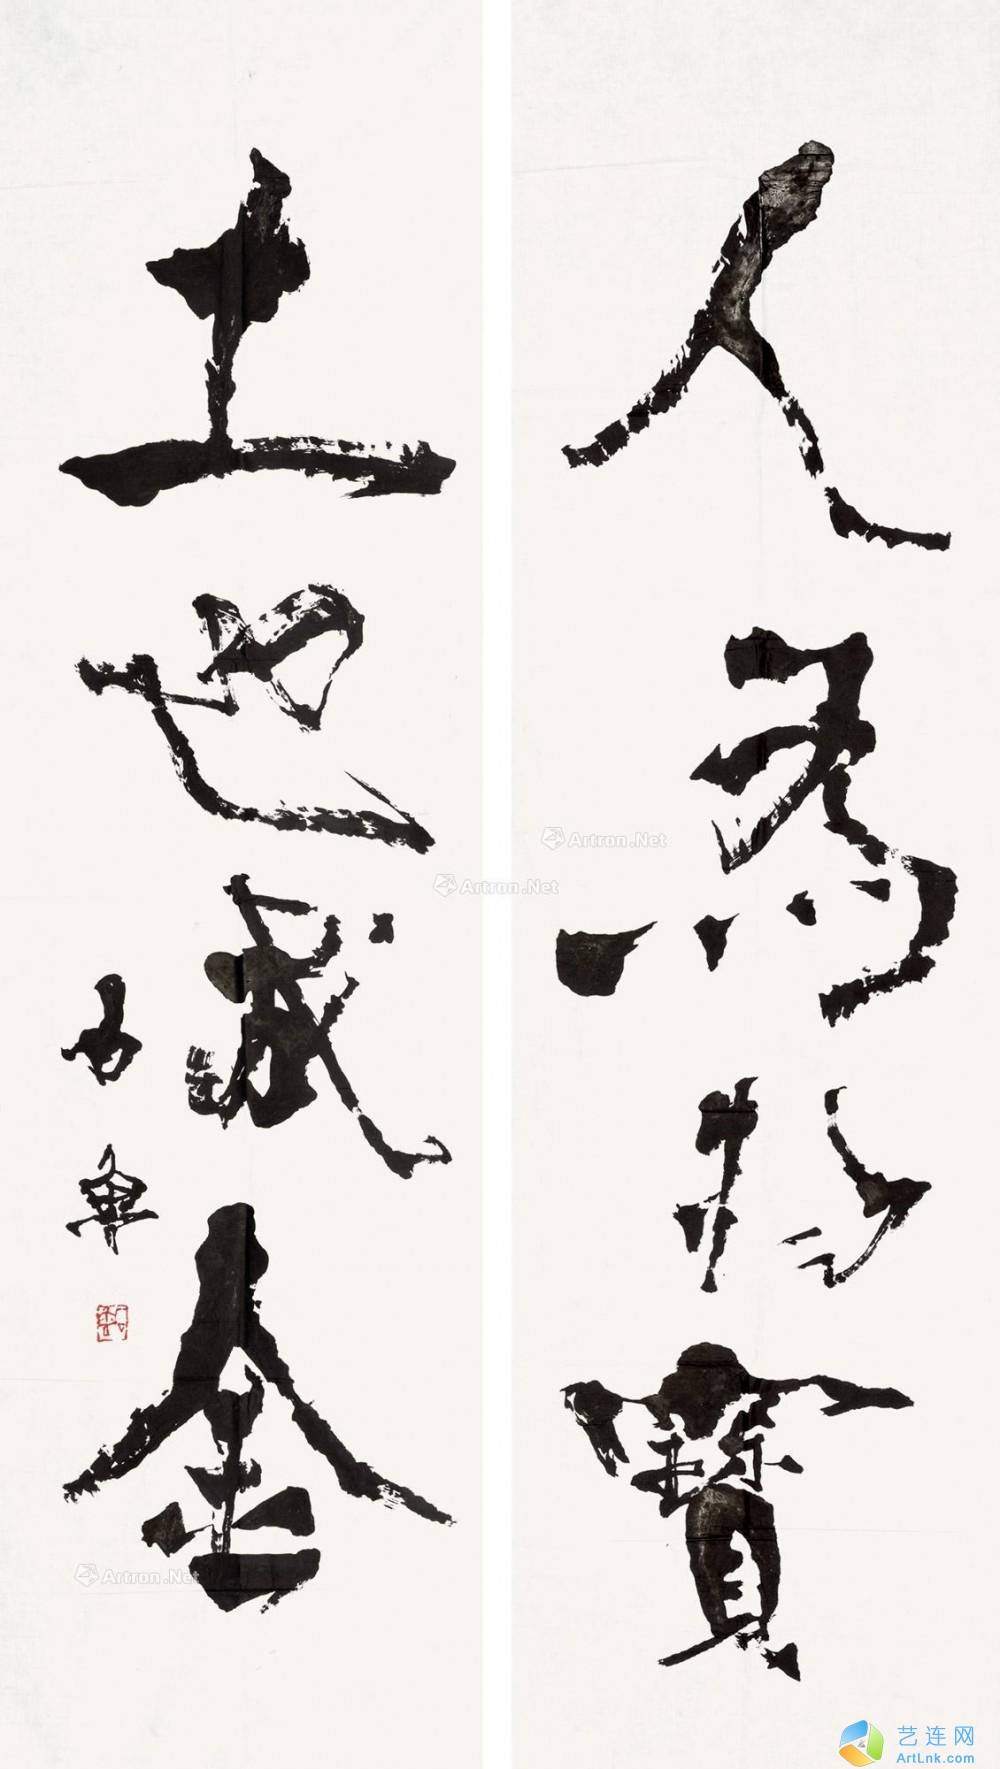 人為物寶
土也成金
Artron.Net
Artron.Net
Artron.Net
艺连网
ArtLnk.com